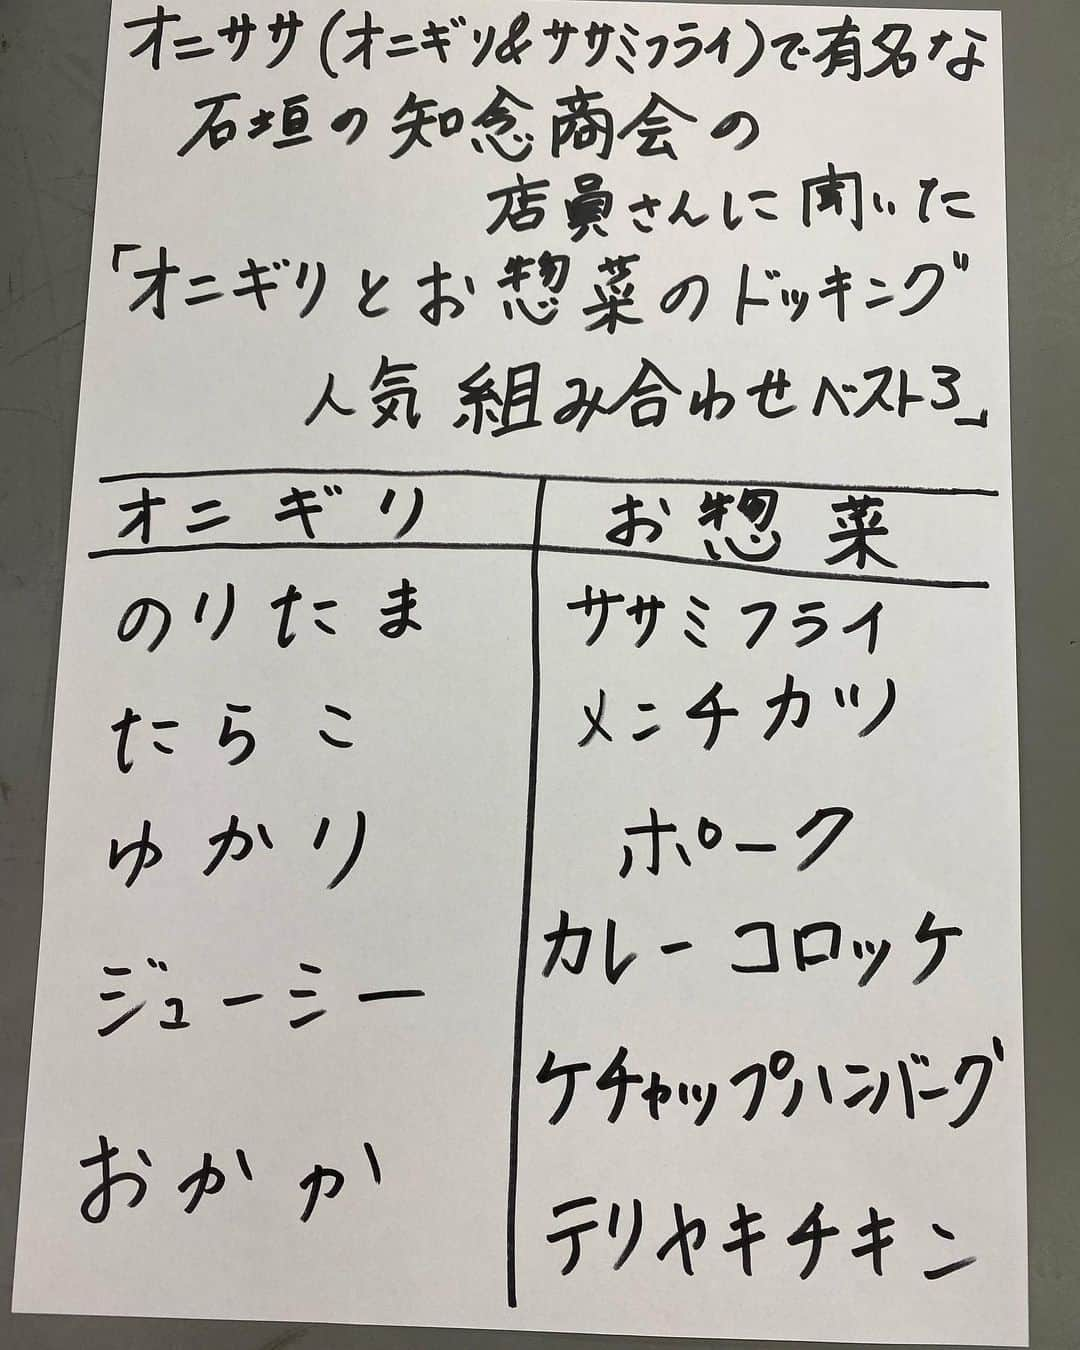 オニササ(オニギリ&ササミフライ)で有名な
石垣の知念商会の
店員さんに聞いた
「オニギリとお惣菜のドッキング
人気組み合わせベスト3」
オニギリ お惣菜
のりたま ササミフライ
たらこ メンチカツ
ゆかり ポーク
ジューシー カレーコロッケ
おかか ケチャップハンバーグ
テリヤキチキン